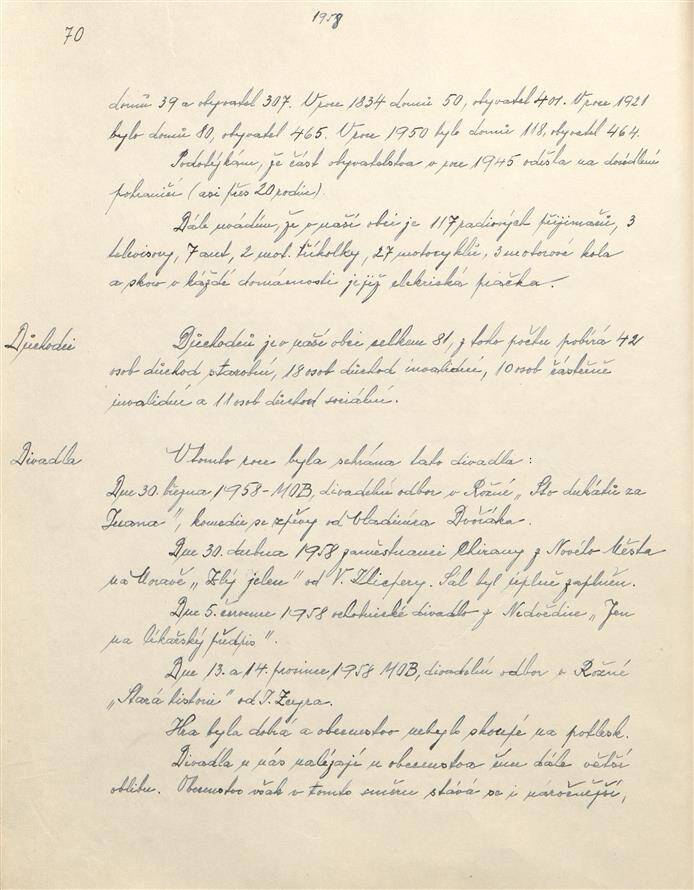 1958
70
domů 39 a obyvatel 307. V roce 1834 domů 50, obyvatel 401. V roce 1921
bylo domů 80, obyvatel 465. V roce 1950 bylo domů 118, obyvatel 464.
Podotýkám, že část obyvatelstva v roce 1945 odešla na dosídlení
pohraničí (asi přes 20 rodin).
Dále uvádím, že v naší obci je 117 radiových přijimačů, 3
televisory, 7 aut, 2 mot. tříkolky, 27 motocyklů, 3 motorové kola
a skoro v každé domácnosti je již elektrická pračka.
Důchodci
Důchodců je v naší obci celkem 81, z toho počtu pobírá 42
osob důchod starobní, 18 osob důchod invalidní, 10 osob částečně
invalidní a 11 osob důchod sociální.
Divadla
V tomto roce byla sehrána tato divadla:
Dne 30. března 1958 - MOB, divadelní odbor v Rožné „Sto dukátů za
Juana", komedie, se zpěvy od Vladimíra Dvořáka.
Dne 30. dubna 1958 zaměstnanci Chirany z Nového Města
na Moravě „Zlý jelen" od V. Klicpery. Sál byl úplně zaplněn.
Dne 5. července 1958 ochotnické divadlo z Nedvědice „Jen
na lékařský předpis".
Dne 13. a 14. prosince 1958 MOB, divadelní odbor v Rožné
„Stará historie" od J. Zeyra.
Hra byla dobrá a obecenstvo nebylo skoupé na potlesk.
Divadla u nás nalézají u obecenstva čím dále větší
oblibu. Obecenstvo však v tomto směru stává se i náročnější,